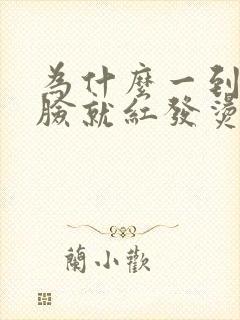 為什麼一到
臉就紅發燙
蘭小歡